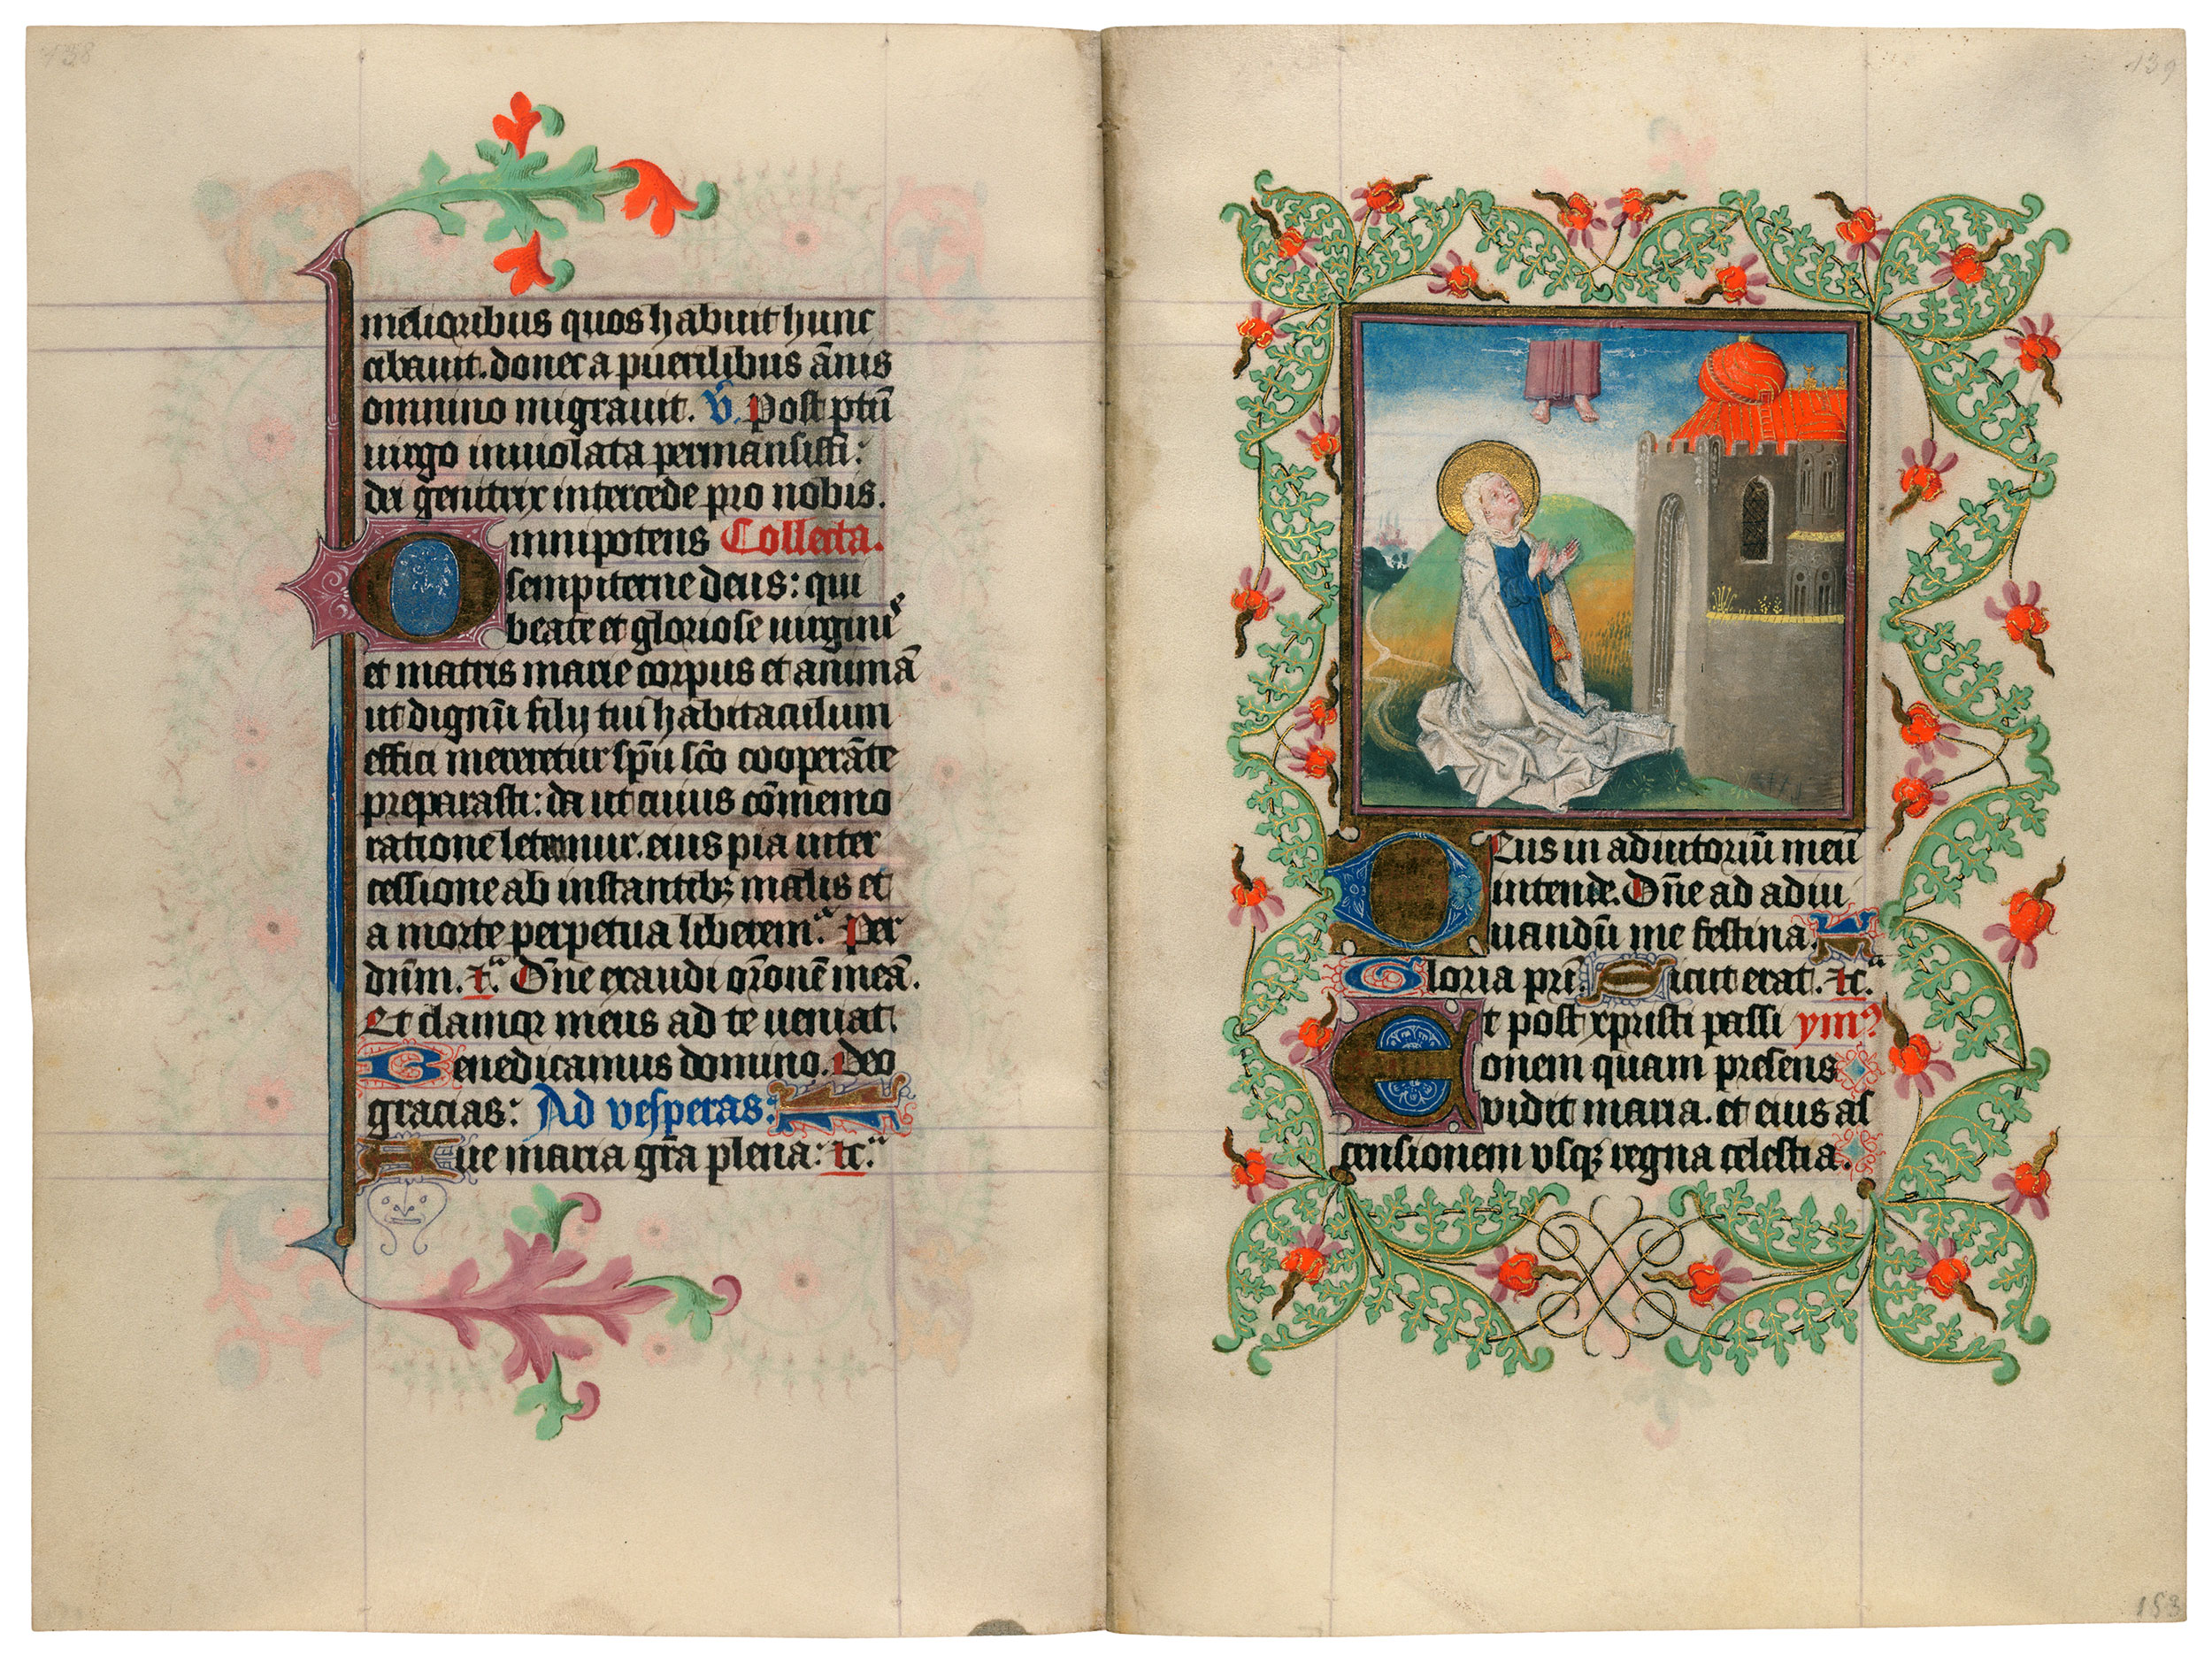 138
melioribus quos habuit hunc
cibauit. donec a puerilibus ānis
omnino migrauit. V̄. Post ptū
uirgo inuiolata permansisti:
dei genitrix intercede pro nobis.
Omnipotens Collecta.
sempiterne deus: qui
beate et gloriose uirginis
et matris marie corpus et animā
ut dignū filij tui habitaculum
effici mereretur spū scō cooperāte
preparasti: da ut cuius cōmemo
ratione letemur. eius pia inter
cessione ab instantibꝫ malis et
a morte perpetua liberem̄ᵃ. Per
dnm̄. ⁊c̄ᵃ Dn̄e exaudi or̄onē meā.
Et clamor meus ad te ueniat.
Benedicamus domino. Deo
gracias: Ad vesperas:
Aue maria gr̄a plena: ⁊c.ᵃ
139
Deus in adiutoriū meū
intende. Dn̄e ad adiu
uandū me festina.
Gloria pr̄i. Sicut erat. ⁊c.ᵃ
Et post xpristi passi ymꝰ
onem quam presens
vidit maria. et eius as
censionem vsqꝫ regna celestia.
153